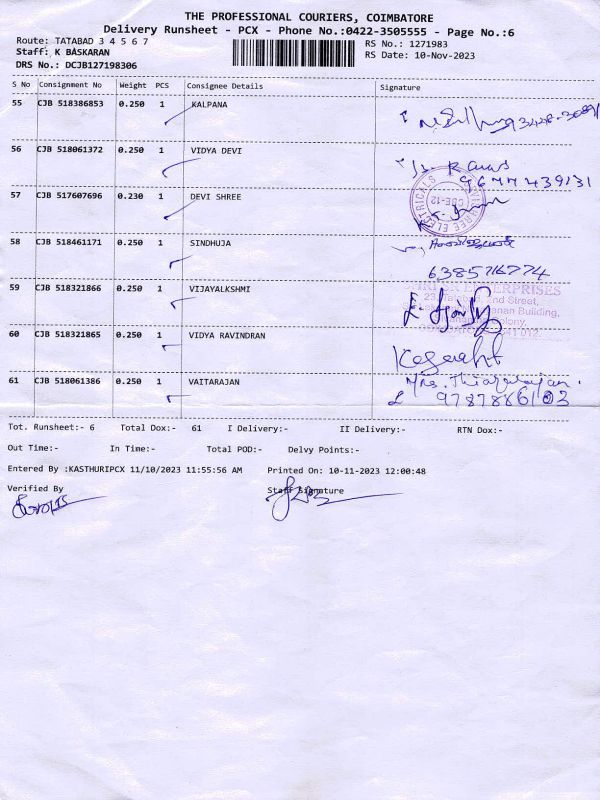 THE PROFESSIONAL COURIERS, COIMBATORE
Delivery Runsheet - PCX - Phone No.:0422-3505555 - Page No.:6
Route: TATABAD 3 4 5 6 7
RS No.: 1271983
Staff: K BASKARAN
RS Date: 10-Nov-2023
DRS No.: DCJB127198306
S No Consignment No Weight PCS Consignee Details Signature
55 CJB 518386853 0.250 1 KALPANA
56 CJB 518061372 0.250 1 VIDYA DEVI
9677439131
57 CJB 517607696 0.230 1 DEVI SHREE
ELECTRICALS
CBE-12
58 CJB 518461171 0.250 1 SINDHUJA
6385716774
59 CJB 518321866 0.250 1 VIJAYALKSHMI
ENTERPRISES
2nd Street,
Building,
60 CJB 518321865 0.250 1 VIDYA RAVINDRAN
61 CJB 518061386 0.250 1 VAITARAJAN
Mrs. Thiagarajan.
9787886103
Tot. Runsheet:- 6 Total Dox:- 61 I Delivery:- II Delivery:- RTN Dox:-
Out Time:- In Time:- Total POD:- Delvy Points:-
Entered By :KASTHURIPCX 11/10/2023 11:55:56 AM Printed On: 10-11-2023 12:00:48
Verified By Staff Signature